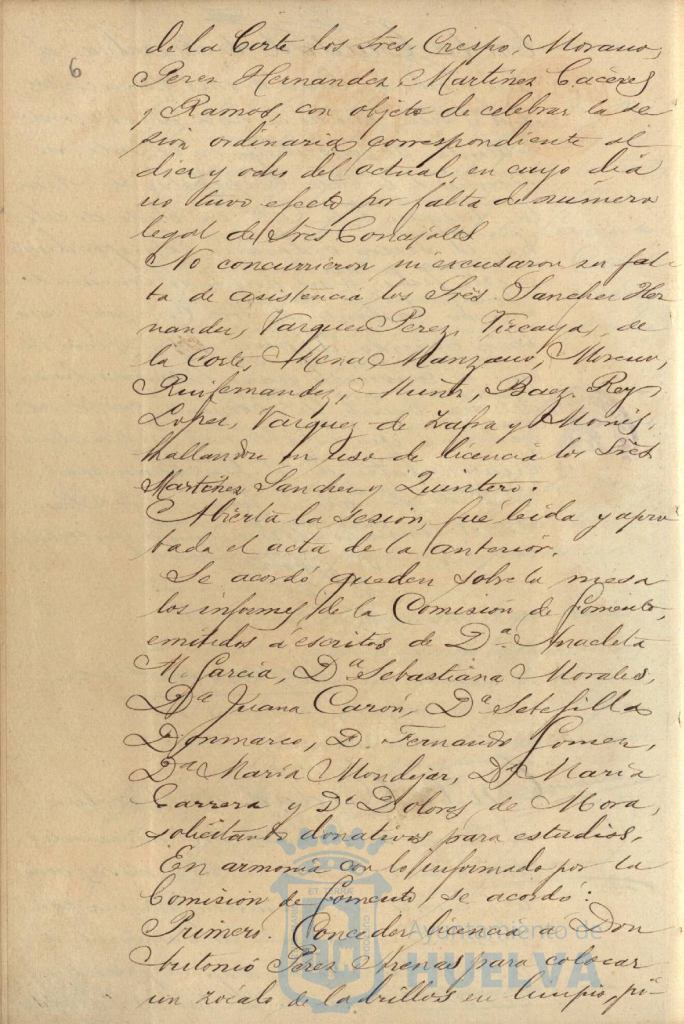 6
de la Corte los Sres. Crespo, Morano,
Perez Hernandez, Martinez Caceres
y Ramos, con objeto de celebrar la se
sion ordinaria correspondiente al
diez y ocho del actual, en cuyo dia
no tuvo efecto por falta de número
legal de Sres Concejales
No concurrieron ni excusaron su fal
ta de asistencia los Sres. Sanchez Her
nandez, Vazquez Perez, Vizcaya, de
la Corte, Mena Manzano, Moreno,
Ruifernandez, Muñoz, Baez, Rey
Lopez, Vazquez de Zafra y Monis,
hallandose en uso de licencia los Sres
Martinez Sanchez y Quintero.
Abierta la sesion, fué leida y apro
bada el acta de la anterior.
Se acordó queden sobre la mesa
los informes de la Comision de Fomento,
emitidos á escritos de Dª. Anacleta
M. Garcia, Dª Sebastiana Morales,
Dª Juana Carón, Dª Setefilla
Donmarco, D. Fernando Gomez,
Dª Maria Mondejar, Dª Maria
Carrera y Dª Dolores de Mora,
solicitando donativos para estudios.
En armonia con lo informado por la
Comision de Fomento se acordó:
Primero. Conceder licencia a Don
Antonio Perez Arenas para colocar
un zócalo de ladrillos en limpio, pi-
Ayuntamiento de
HUELVA